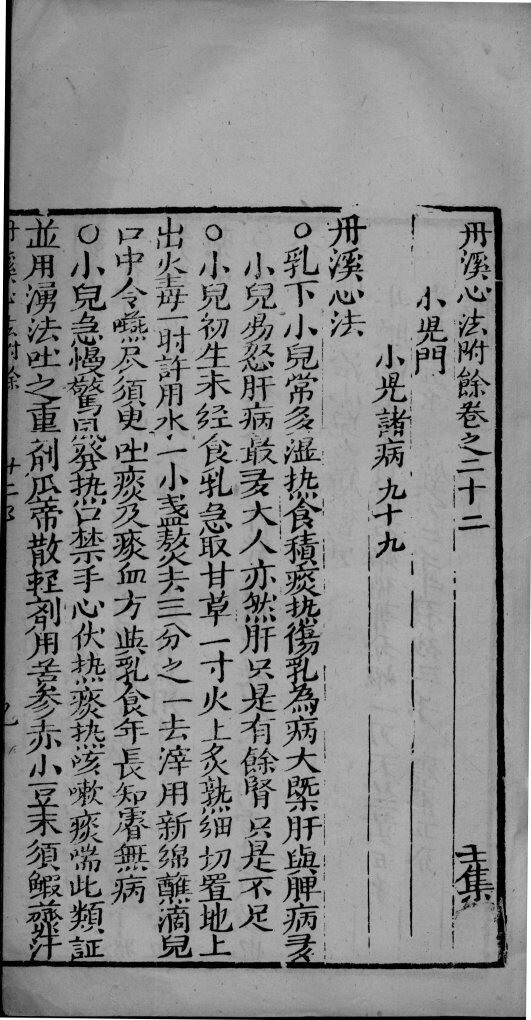 丹溪心法附餘卷之二十二 壬集
小児門
小児諸病九十九
丹溪心法
○乳下小兒常多湿热食積痰热傷乳為病大槩肝與脾病多
小兒易怒肝病最多大人亦然肝只是有餘腎只是不足
○小兒初生未经食乳急取甘草一寸火上炙熟细切置地上
出火毒一时許用水一小盏熬去三分之一去滓用新绵蘸滴兒
口中令嚥尽須臾吐痰及瘀血方與乳食年長知睿無病
○小兒急慢驚風發热口禁手心伏热痰热咳嗽痰喘此類証
並用湧法吐之重剤瓜帝散輕剤用苦参赤小豆末須鰕虀汁
丹溪心法附餘